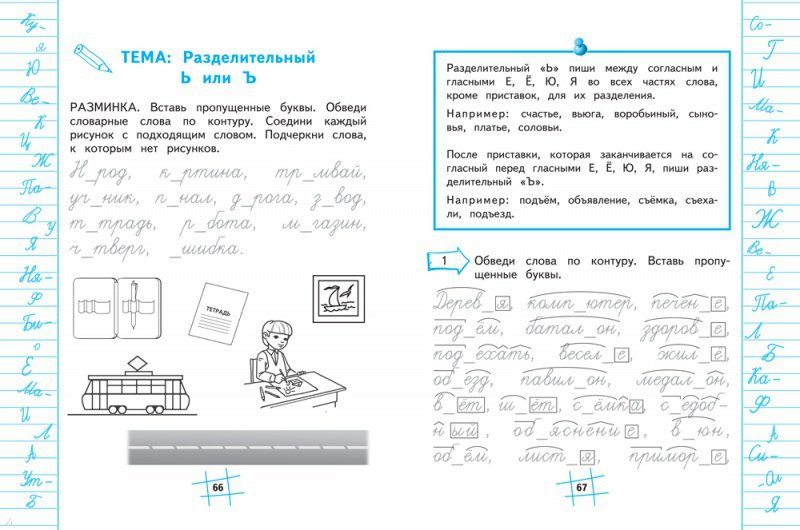 ТЕМА: Разделительный
Ь или Ъ
РАЗМИНКА. Вставь пропущенные буквы. Обведи
словарные слова по контуру. Соедини каждый
рисунок с подходящим словом. Подчеркни слова,
к которым нет рисунков.
Н_род, к_ртина, тр_мвай,
уч_ник, п_нал, д_рога, з_вод,
т_традь, р_бота, м_газин,
ч_тверг, _шибка.
ТЕТРАДЬ
66
Разделительный «Ь» пиши между согласным и
гласными Е, Ё, Ю, Я во всех частях слова,
кроме приставок, для их разделения.
Например: счастье, вьюга, воробьиный, сыно-
вья, платье, соловьи.
После приставки, которая заканчивается на со-
гласный перед гласными Е, Ё, Ю, Я, пиши раз-
делительный «Ъ».
Например: подъём, объявление, съёмка, съеха-
ли, подъезд.
1 Обведи слова по контуру. Вставь пропу-
щенные буквы.
Дерев_я, комп_ютер, печен_е,
под_ём, батал_он, здоров_е,
под_ехать, весел_е, жил_е,
об_езд, павил_он, медал_он,
в_ёт, ш_ёт, с_ёмка, с_едоб-
ный, об_яснение, в_юн,
об_ём, лист_я, примор_е,
67
Ку-
я
Ю
Ве-
К
Ц
Ж
Па-
В
У
Я
Ня-
Ф
Би-
о
Е
Ма-
И
Л
А
Ут-
Б
Со-
Г
И
Ма-
К
Ня-
В
Ж
Ве-
Е
Па-
Л
Б
Ка-
Ф
А
Си-
Оля
Я